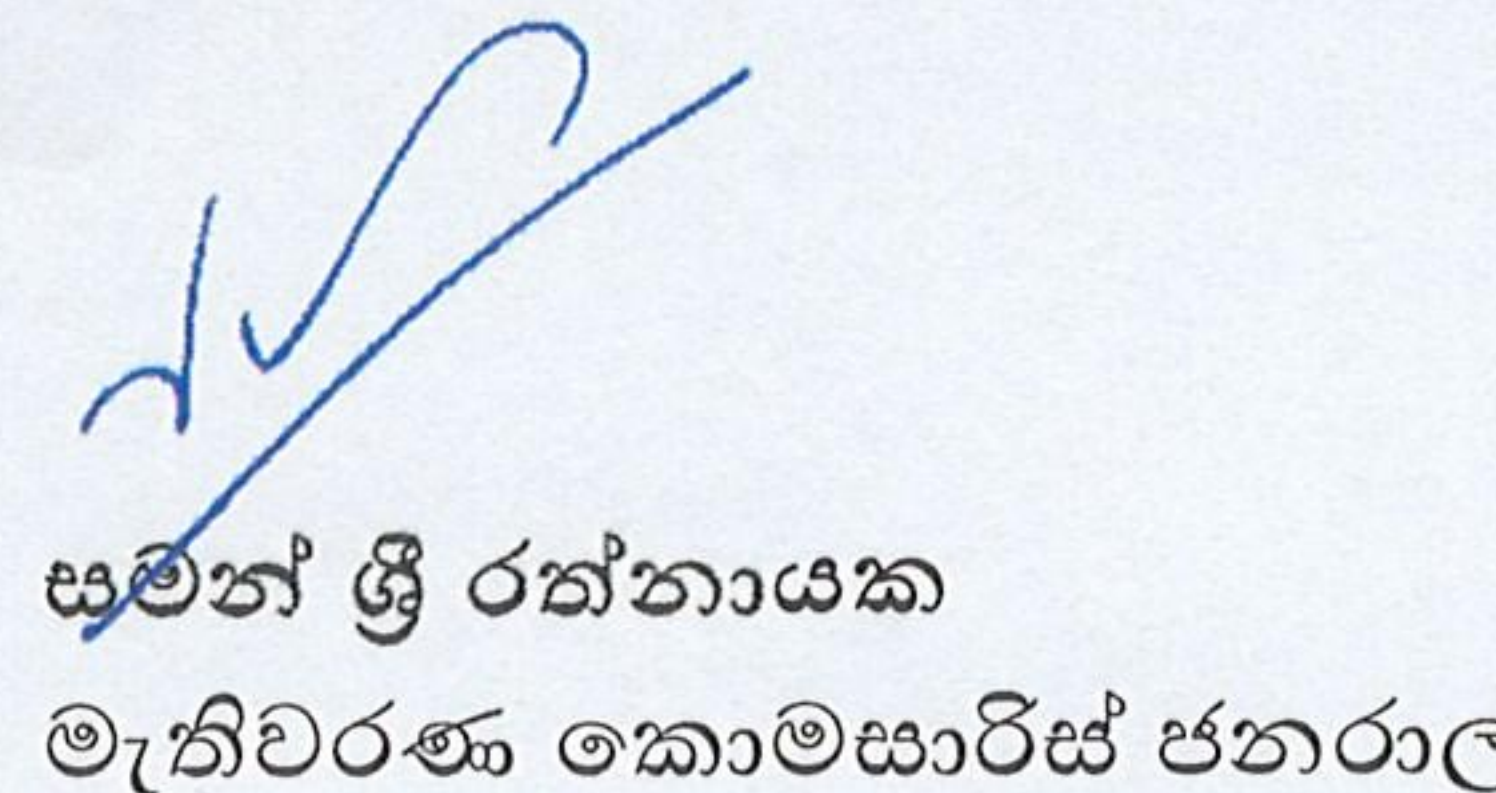 සමන් ශ්‍රී රත්නායක
මැතිවරණ කොමසාරිස් ජනරාල